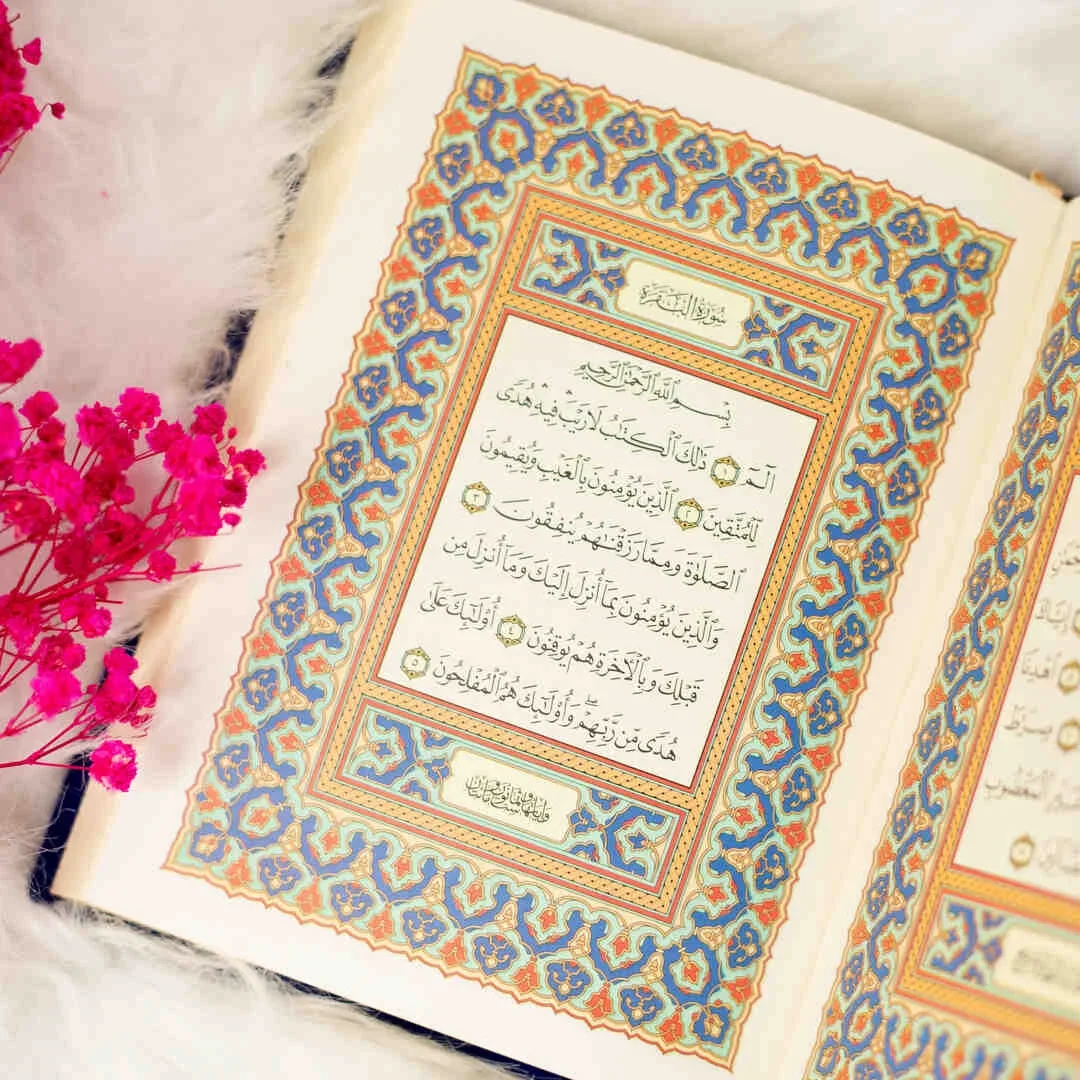 سُورَةُ الْبَقَرَةِ
بِسْمِ ٱللَّهِ ٱلرَّحْمَٰنِ ٱلرَّحِيمِ
الٓمٓ ١ ذَٰلِكَ ٱلْكِتَٰبُ لَا رَيْبَ ۛ فِيهِ ۛ هُدًى
لِّلْمُتَّقِينَ ٢ ٱلَّذِينَ يُؤْمِنُونَ بِٱلْغَيْبِ وَيُقِيمُونَ
ٱلصَّلَوٰةَ وَمِمَّا رَزَقْنَٰهُمْ يُنفِقُونَ ٣
وَٱلَّذِينَ يُؤْمِنُونَ بِمَآ أُنزِلَ إِلَيْكَ وَمَآ أُنزِلَ مِن
قَبْلِكَ وَبِٱلْءَاخِرَةِ هُمْ يُوقِنُونَ ٤ أُو۟لَٰٓئِكَ عَلَىٰ
هُدًى مِّن رَّبِّهِمْ ۖ وَأُو۟لَٰٓئِكَ هُمُ ٱلْمُفْلِحُونَ ٥
إِيَّاكَ
ٱهْدِنَا
صِرَٰطَ
ٱلْمَغْضُوبِ